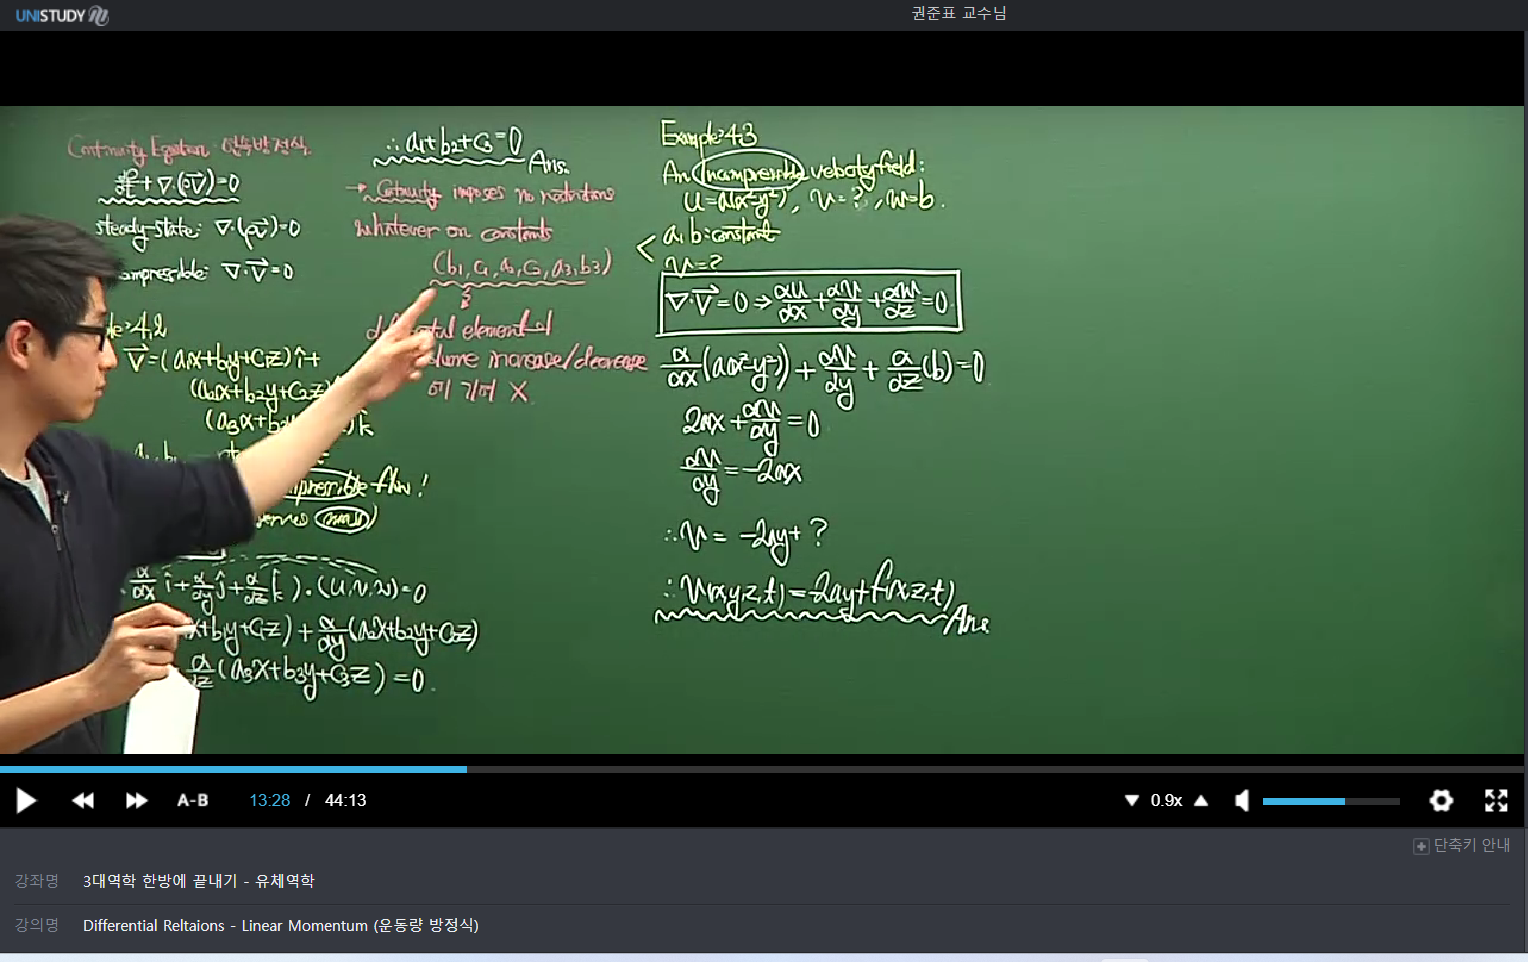 UNISTUDY
권준표 교수님
Continuity Equation 연속방정식.
+∇·(ρV)=0
steady-state: ∇·(ρV)=0
ompressible: ∇·V=0
le 4.2
V=(a₁x+b₁y+C₁z)î+
(a₂x+b₂y+C₂z)
(a₃x+b₃ )k̂
ompressible flow!
mass)
d/dx î+d/dy ĵ+d/dz k̂)·(u,v,w)=0
x+b₁y+C₁z)+d/dy(a₂x+b₂y+C₂z)
d/dz(a₃x+b₃y+C₃z)=0.
∴ a₁+b₂+C₃=0
Ans.
→ Continuity imposes no restrictions
whatever on constants
(b₁,C₁,a₂,C₂,a₃,b₃)
differential element
volume increase/decrease
에 기여 X.
Example 4.3
An incompressible velocity field:
u=a(x²-y²), v=?, w=b.
a,b: constant
v=?
∇·V=0 ⇒ du/dx+dv/dy+dw/dz=0
d/dx(a(x²-y²))+dv/dy+d/dz(b)=0
2ax+dv/dy=0
dv/dy=-2ax
∴v= -2ay+ ?
∴v(x,y,z,t)=-2ay+f(x,z,t)
Ans
A-B
13:28 / 44:13
0.9x
단축키 안내
강좌명 3대역학 한방에 끝내기 - 유체역학
강의명 Differential Reltaions - Linear Momentum (운동량 방정식)